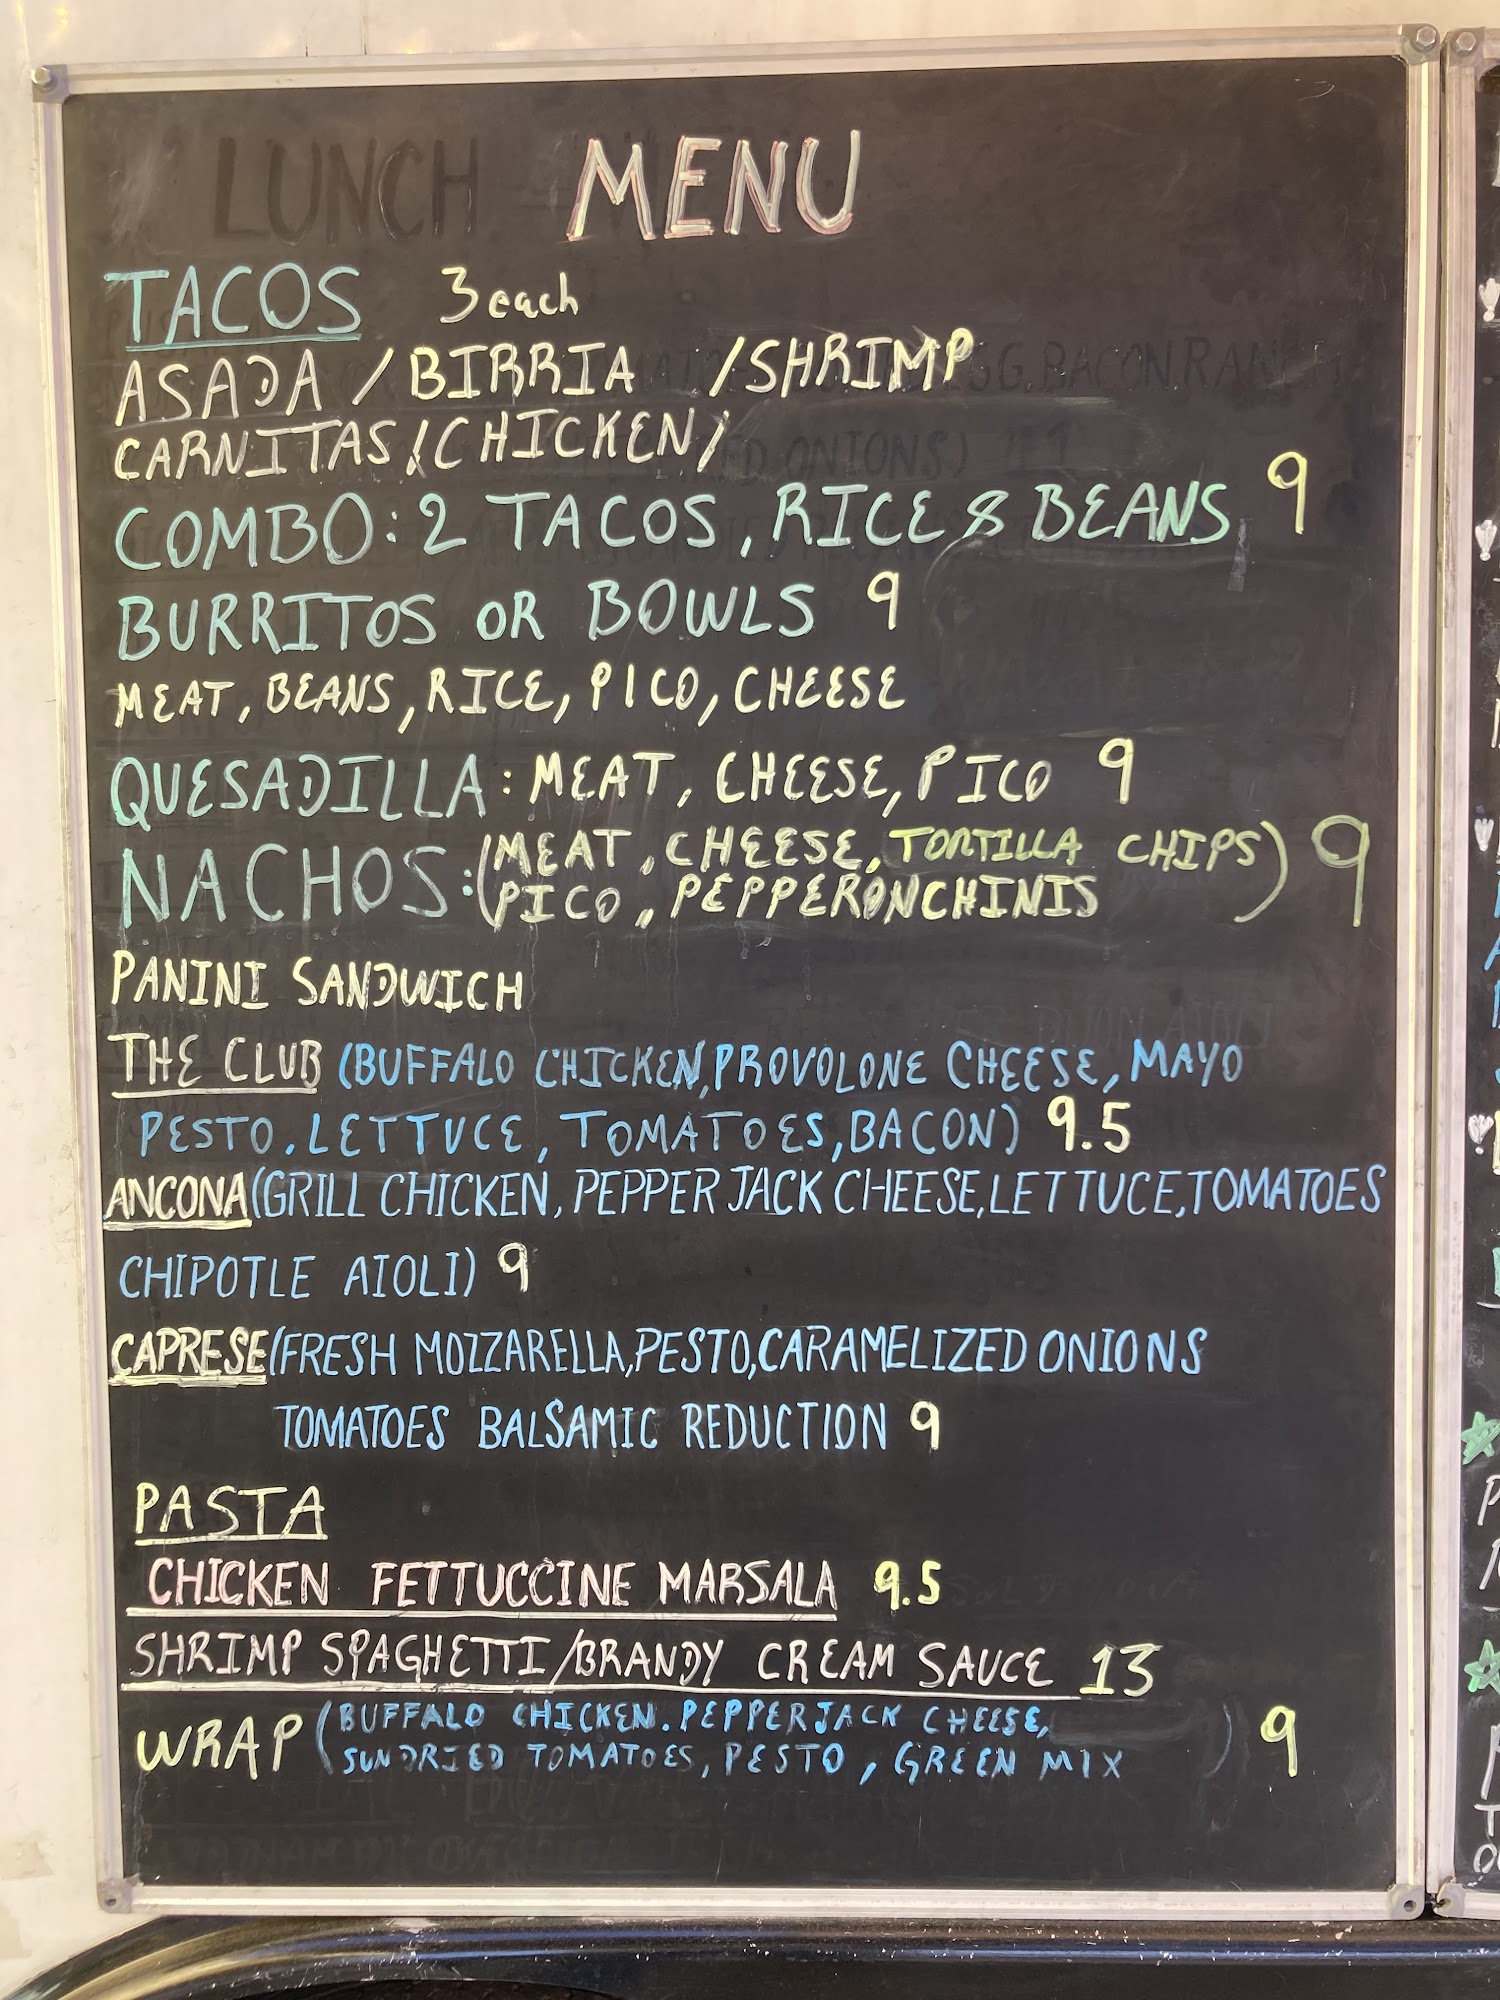 LUNCH MENU
TACOS 3 each
ASADA / BIRRIA / SHRIMP
CARNITAS / CHICKEN /
COMBO: 2 TACOS, RICE & BEANS 9
BURRITOS OR BOWLS 9
MEAT, BEANS, RICE, PICO, CHEESE
QUESADILLA: MEAT, CHEESE, PICO 9
NACHOS: (MEAT, CHEESE, TORTILLA CHIPS) 9
PICO, PEPPERONCHINIS
PANINI SANDWICH
THE CLUB (BUFFALO CHICKEN, PROVOLONE CHEESE, MAYO
PESTO. LETTUCE, TOMATOES, BACON) 9.5
ANCONA (GRILL CHICKEN, PEPPER JACK CHEESE, LETTUCE, TOMATOES
CHIPOTLE AIOLI) 9
CAPRESE (FRESH MOZZARELLA, PESTO, CARAMELIZED ONIONS
TOMATOES BALSAMIC REDUCTION 9
PASTA
CHICKEN FETTUCCINE MARSALA 9.5
SHRIMP SPAGHETTI/BRANDY CREAM SAUCE 13
WRAP (BUFFALO CHICKEN. PEPPER JACK CHEESE, ) 9
SUNDRIED TOMATOES, PESTO, GREEN MIX